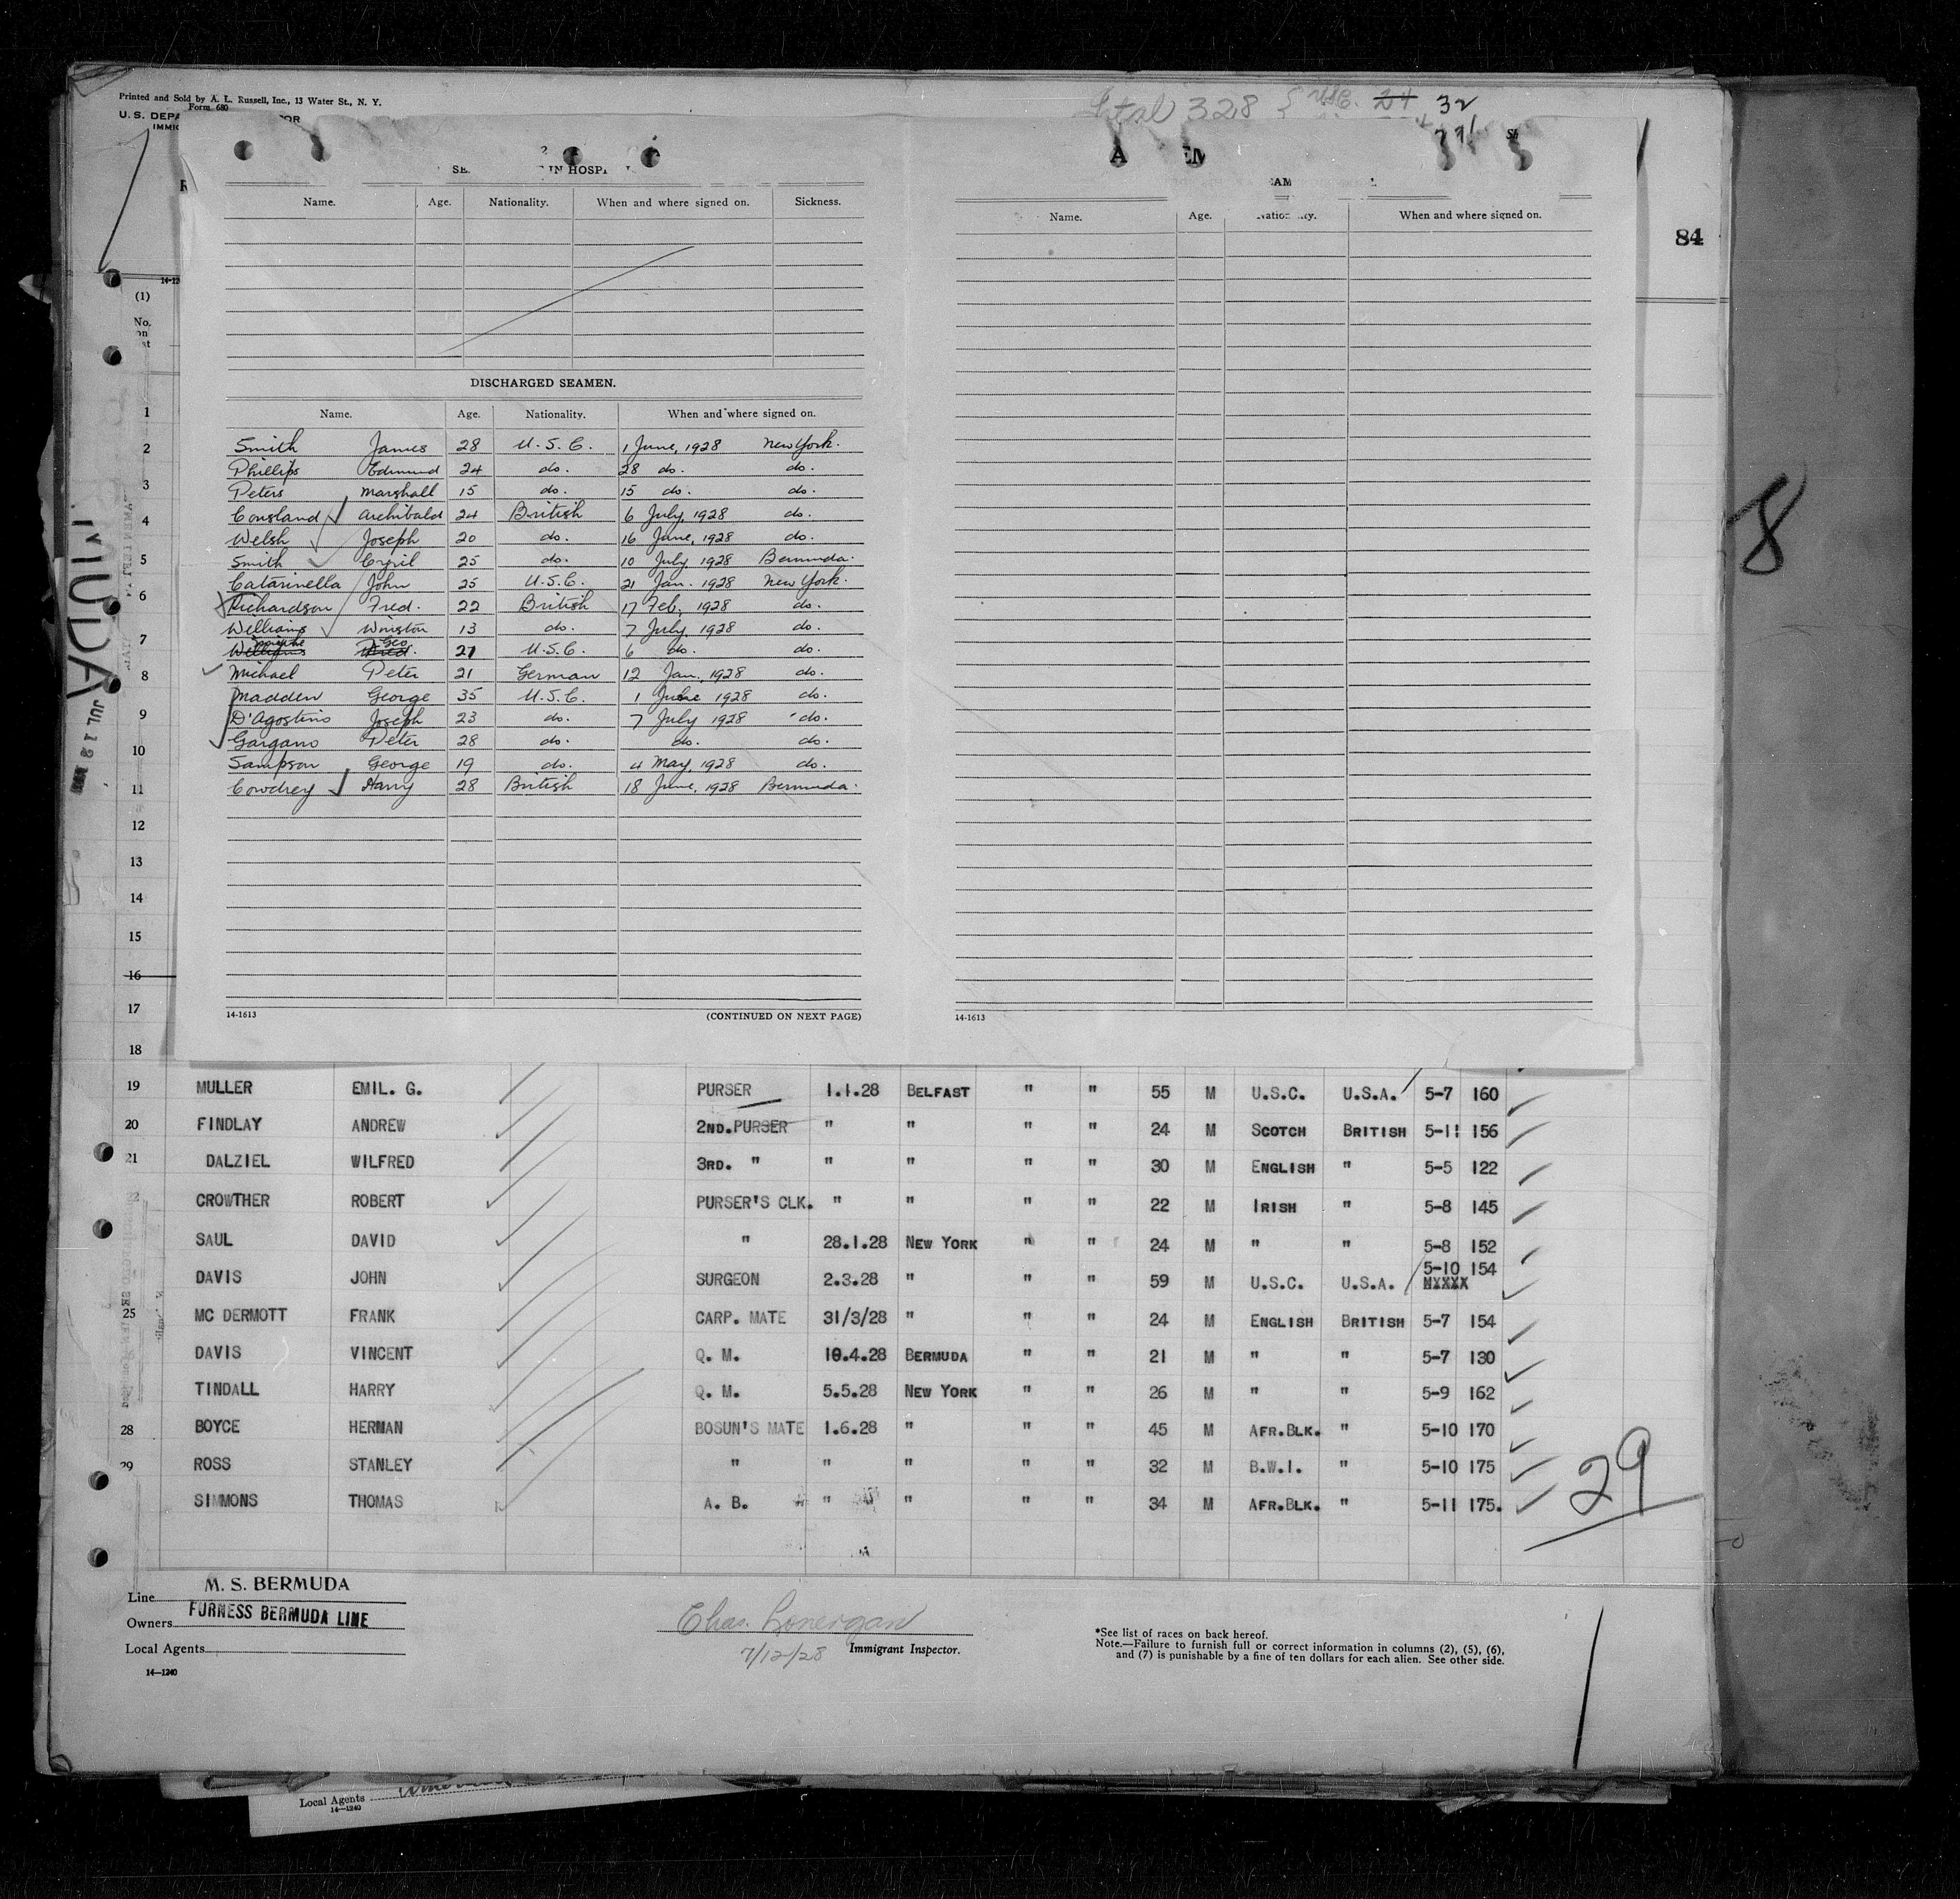 Printed and Sold by A. L. Russell, Inc., 13 Water St., N. Y.
Form 680
Total 328 { U.S.C. 24 32
SE IN HOSPI
Name. Age. Nationality. When and where signed on. Sickness.
Name. Age. When and where signed on.
84
(1)
No.
on
DISCHARGED SEAMEN.
Name. Age. Nationality. When and where signed on.
Smith James 28 U.S.C. 1 June, 1928 New York.
Phillips Edmund 24 do. 28 do. do.
Peters Marshall 15 do. 15 do. do.
Consland Archibald 24 British 6 July, 1928 do.
Welsh Joseph 20 do. 16 June, 1928 do.
Smith Cyril 25 do. 10 July 1928 Bermuda.
Catarinella John 25 U.S.C. 21 Jan. 1928 New York.
Richardson Fred. 22 British 17 Feb. 1928 do.
Williams Winston 13 do. 7 July, 1928 do.
Geo 27 U.S.C. 6 do. do.
Michael Peter 21 German 12 Jan. 1928 do.
Madden George 35 U.S.C. 1 June 1928 do.
D'Agostino Joseph 23 do. 7 July 1928 do.
Gargano Peter 28 do. do. do.
Sampson George 19 do. 4 May, 1928 do.
Cowdrey Harry 28 British 18 June, 1928 Bermuda.
1
2
3
4
5
6
7
8
9
10
11
12
13
14
15
16
17
18
8
MUDA
JUL 12
14-1613 (CONTINUED ON NEXT PAGE)
14-1613
19 MULLER EMIL. G. PURSER 1.1.28 BELFAST " " 55 M U.S.C. U.S.A. 5-7 160
20 FINDLAY ANDREW 2ND. PURSER " " " " 24 M SCOTCH BRITISH 5-11 156
21 DALZIEL WILFRED 3RD. " " " " " 30 M ENGLISH " 5-5 122
CROWTHER ROBERT PURSER'S CLK. " " " " 22 M IRISH " 5-8 145
SAUL DAVID " 28.1.28 NEW YORK " " 24 M " " 5-8 152
DAVIS JOHN SURGEON 2.3.28 " " " 59 M U.S.C. U.S.A. 5-10 154
25 MC DERMOTT FRANK CARP. MATE 31/3/28 " " " 24 M ENGLISH BRITISH 5-7 154
DAVIS VINCENT Q. M. 10.4.28 BERMUDA " " 21 M " " 5-7 130
TINDALL HARRY Q. M. 5.5.28 NEW YORK " " 26 M " " 5-9 162
28 BOYCE HERMAN BOSUN'S MATE 1.6.28 " " " 45 M AFR.BLK. " 5-10 170
29 ROSS STANLEY " " " " " 32 M B.W.I. " 5-10 175
SIMMONS THOMAS A. B. " " " " 34 M AFR.BLK. " 5-11 175.
29
Line M. S. BERMUDA
Owners FURNESS BERMUDA LINE
Local Agents
14—1240
Chas. Lonergan
7/12/28 Immigrant Inspector.
*See list of races on back hereof.
Note.—Failure to furnish full or correct information in columns (2), (5), (6),
and (7) is punishable by a fine of ten dollars for each alien. See other side.
Local Agents
14—1240